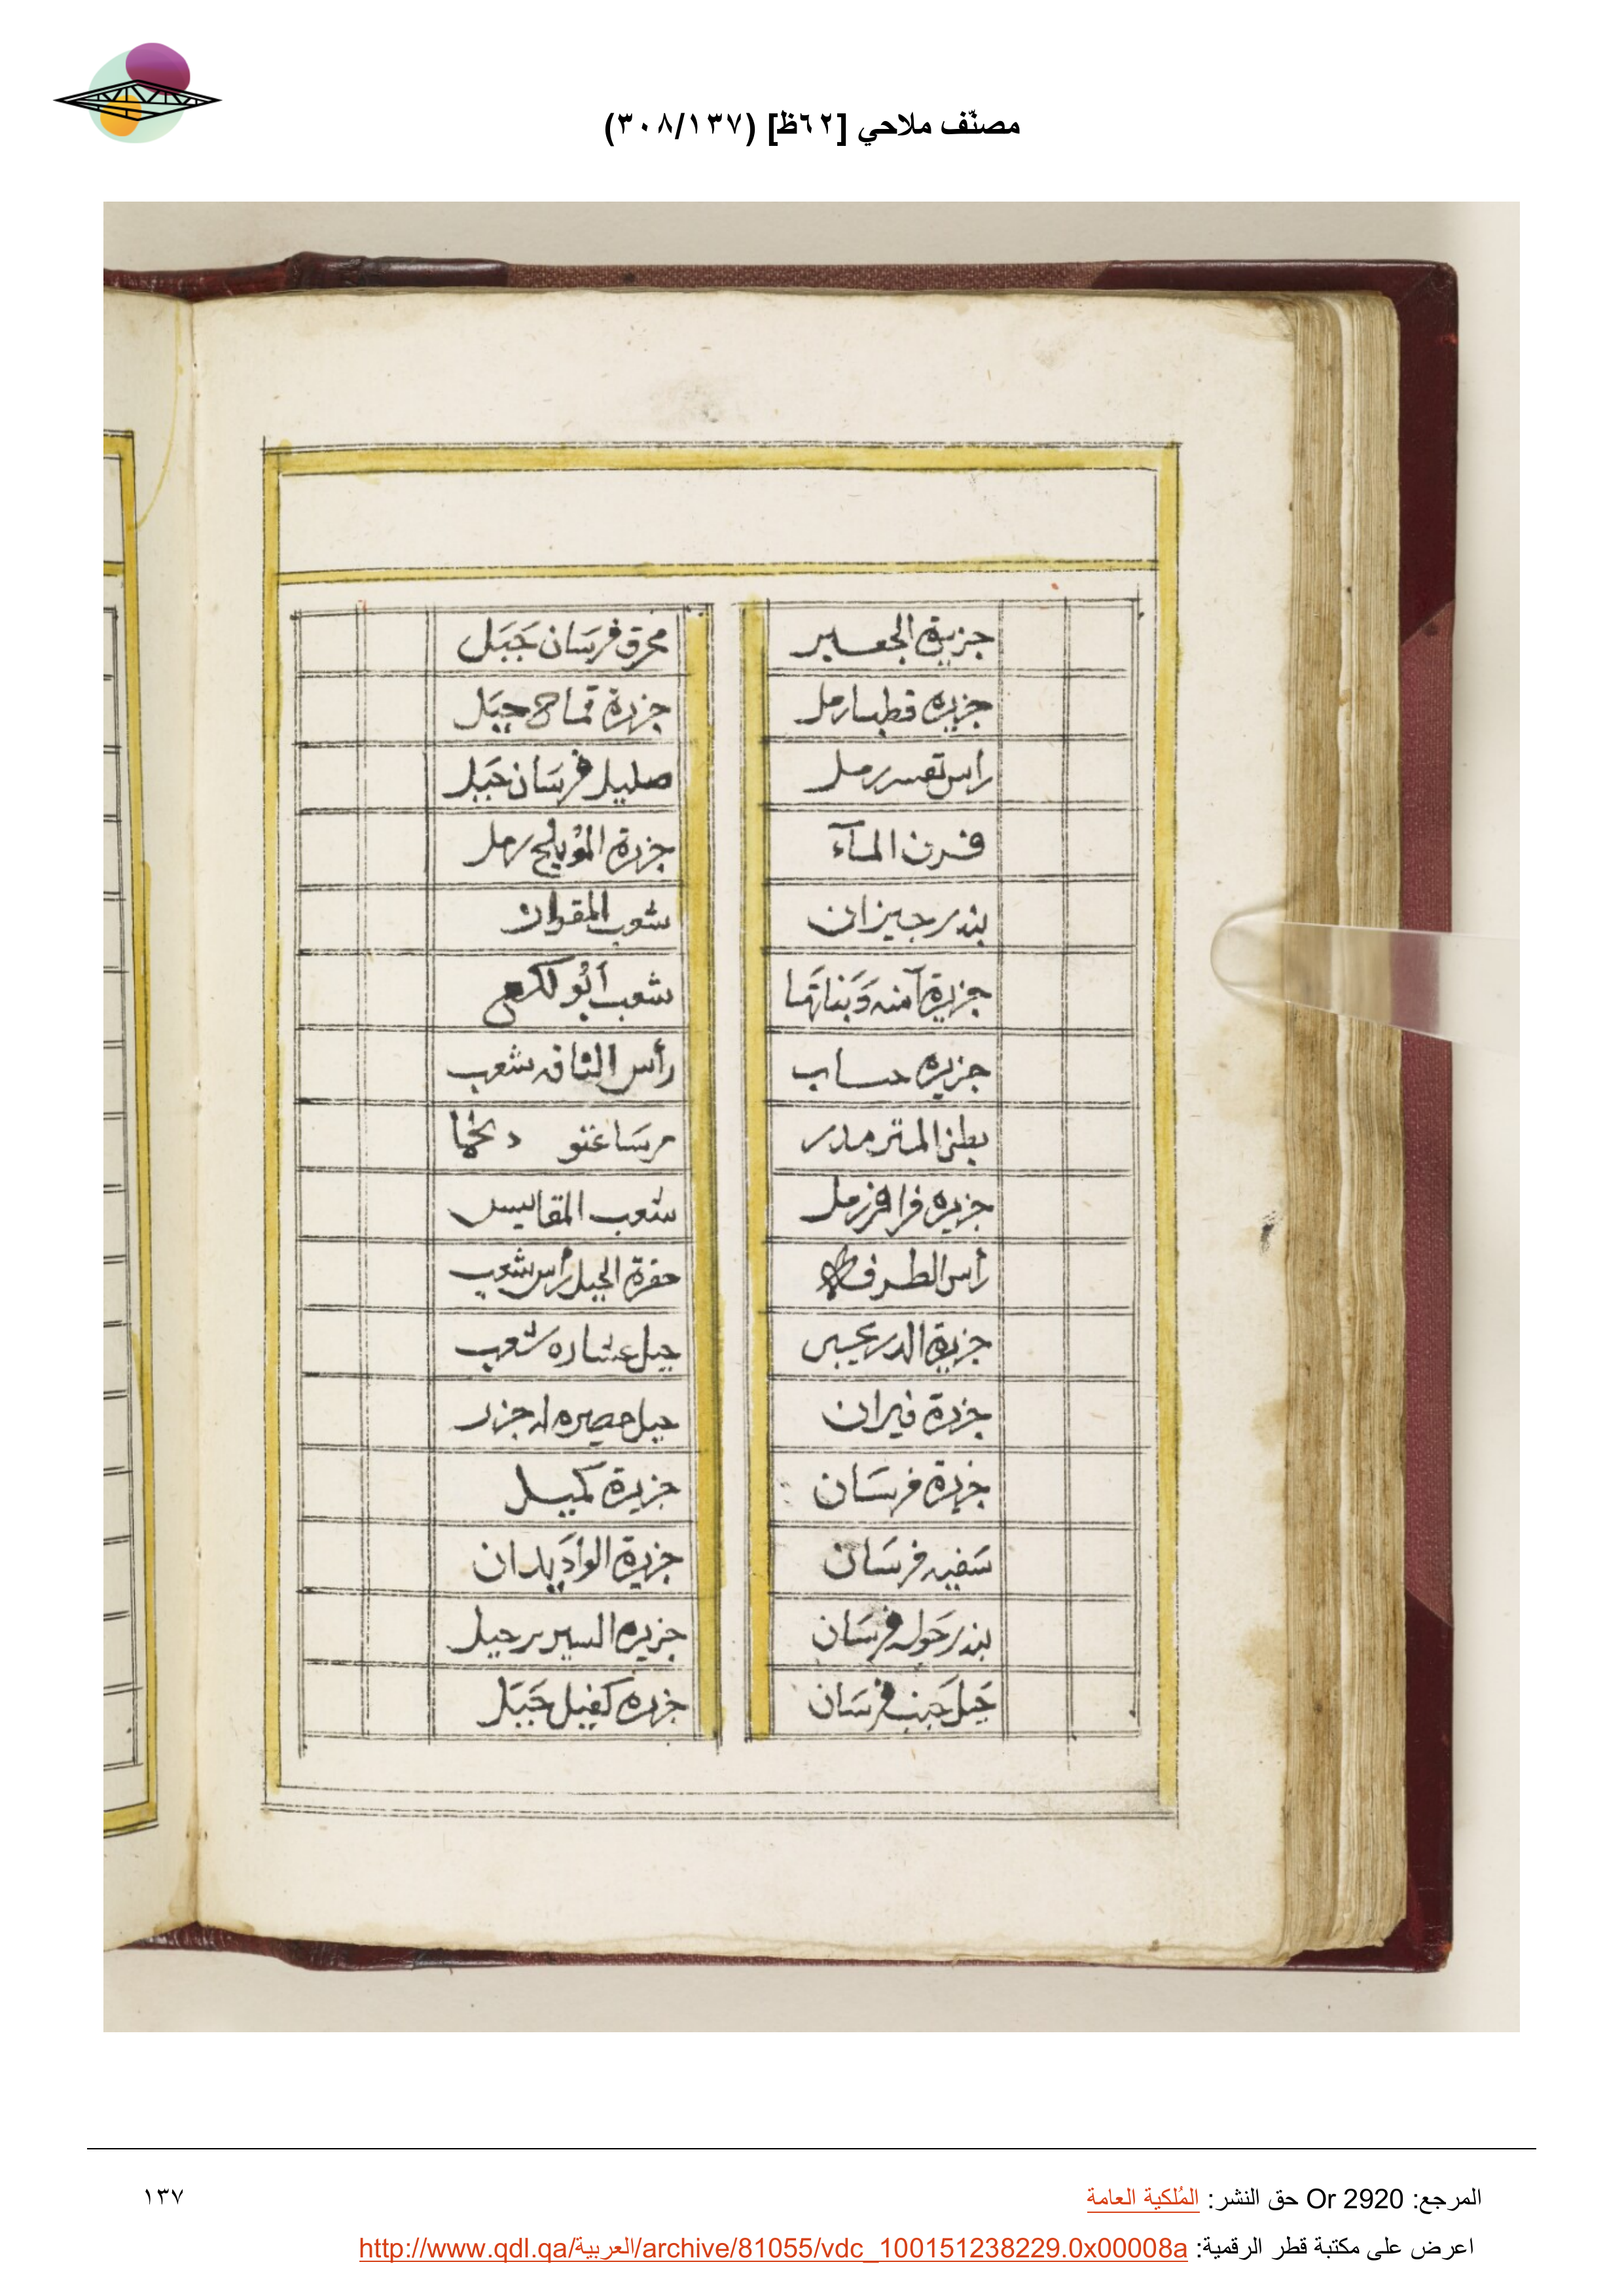 مصنّف ملاحي [٦٢ظ] (٣٠٨/١٣٧)
جزيرة الجعير
جزيره قطبا رمل
راس تعسر رمل
قرن المآء
بندر جيزان
جزيرة آمنه وَبَناتَها
جزيره حساب
بطن المتر مدر
جزيره فرافر رمل
رأس الطرفا
جزيرة الدريجبي
جزيرة فيران
جزيرة فرسَان
سَفينه فرسَان
بندر خوله فرسَان
جَبل جَنب فرسَان
محرق فرسَان جَبَل
جزيرة قماح جبَل
صليل فرسَان جَبَل
جزيرة المُويلح رمل
شعب المقوان
شعب أبُو لكع
رأس الثافه شعب
مرسَا غنو دخما
شعب المقاييس
حفرة الجبل رأس شعب
جبل عشاره شعب
جبل حصيره له جزر
جزيرة كميل
جزيرة الوادَيدان
جزيره السرير جبل
جزيره كفيل جَبَل
المرجع: Or 2920 حق النشر: المُلكية العامة
١٣٧
اعرض على مكتبة قطر الرقمية: http://www.qdl.qa/العربية/archive/81055/vdc_100151238229.0x00008a